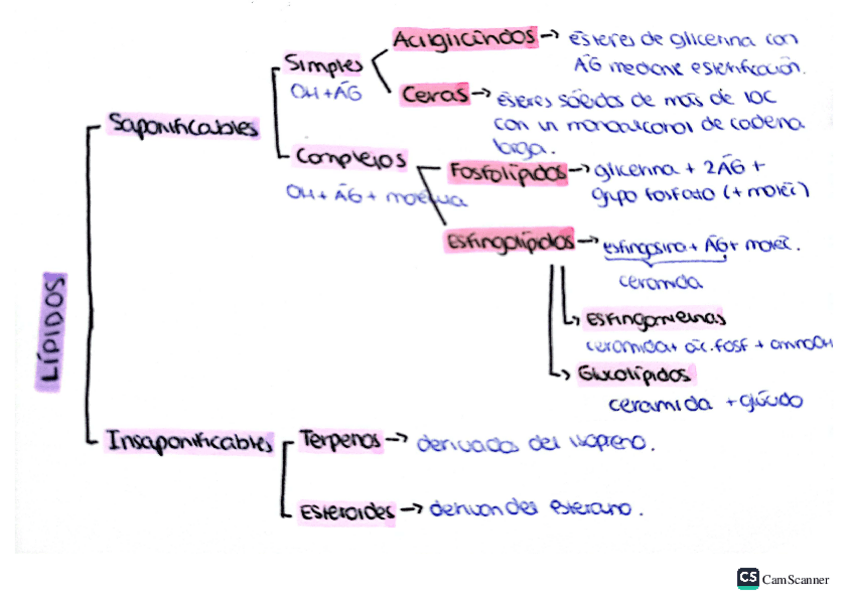 LÍPIDOS
Saponificables
Simples
OH + ĀG
Acilglicéridos → ésteres de glicerina con
ĀG mediante esterificación.
Ceras → ésteres sólidos de más de 10C
con un monoalcohol de cadena
larga.
Complejos
OH + ĀG + molécula
Fosfolípidos → glicerina + 2ĀG +
grupo fosfato (+ moléc)
Esfingolípidos → esfingosina + ĀG + moléc.
ceramida
Esfingomielinas
ceramida + ác. fosf + aminoOH
Glucolípidos
ceramida + glúcido
Insaponificables
Terpenos → derivados del isopreno.
Esteroides → derivan del esterano.
CS CamScanner